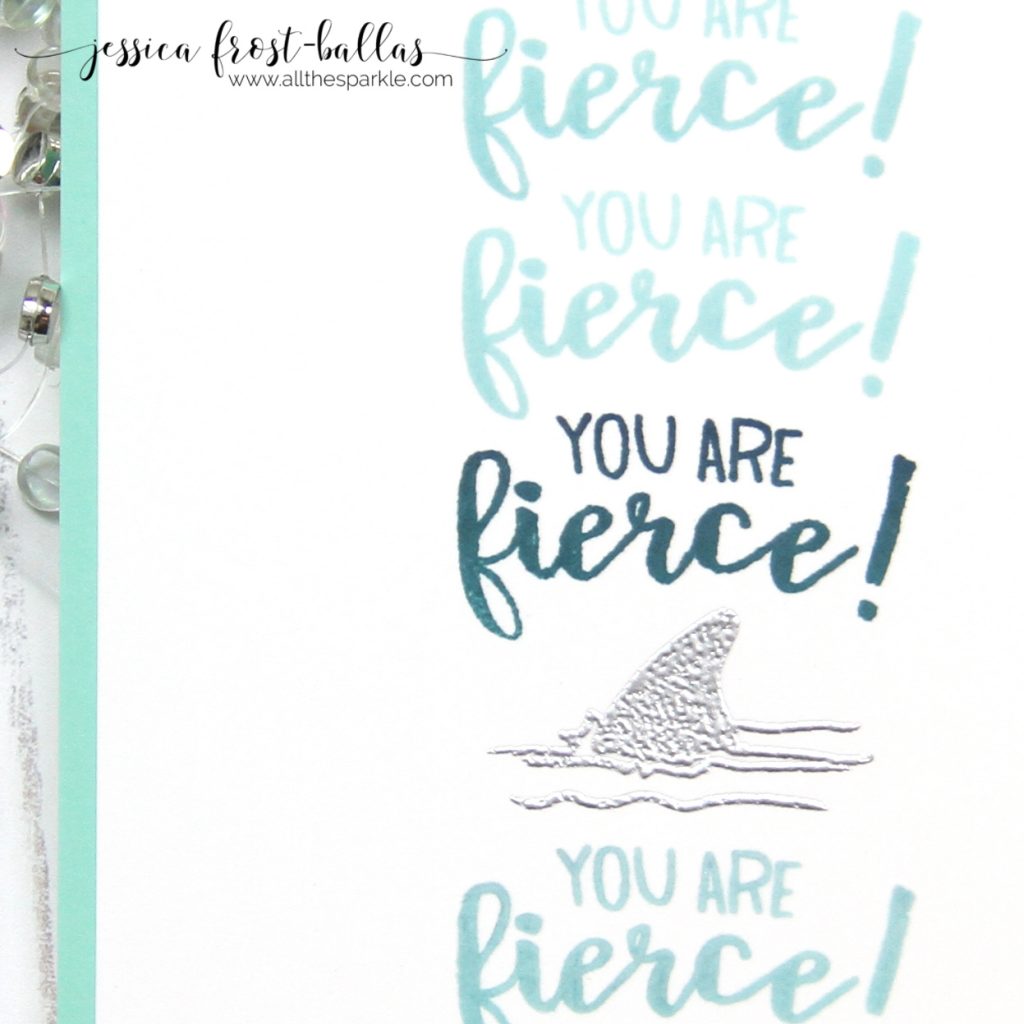 jessica frost-ballas
www.allthesparkle.com
YOU ARE
fierce!
YOU ARE
fierce!
YOU ARE
fierce!
YOU ARE
fierce!